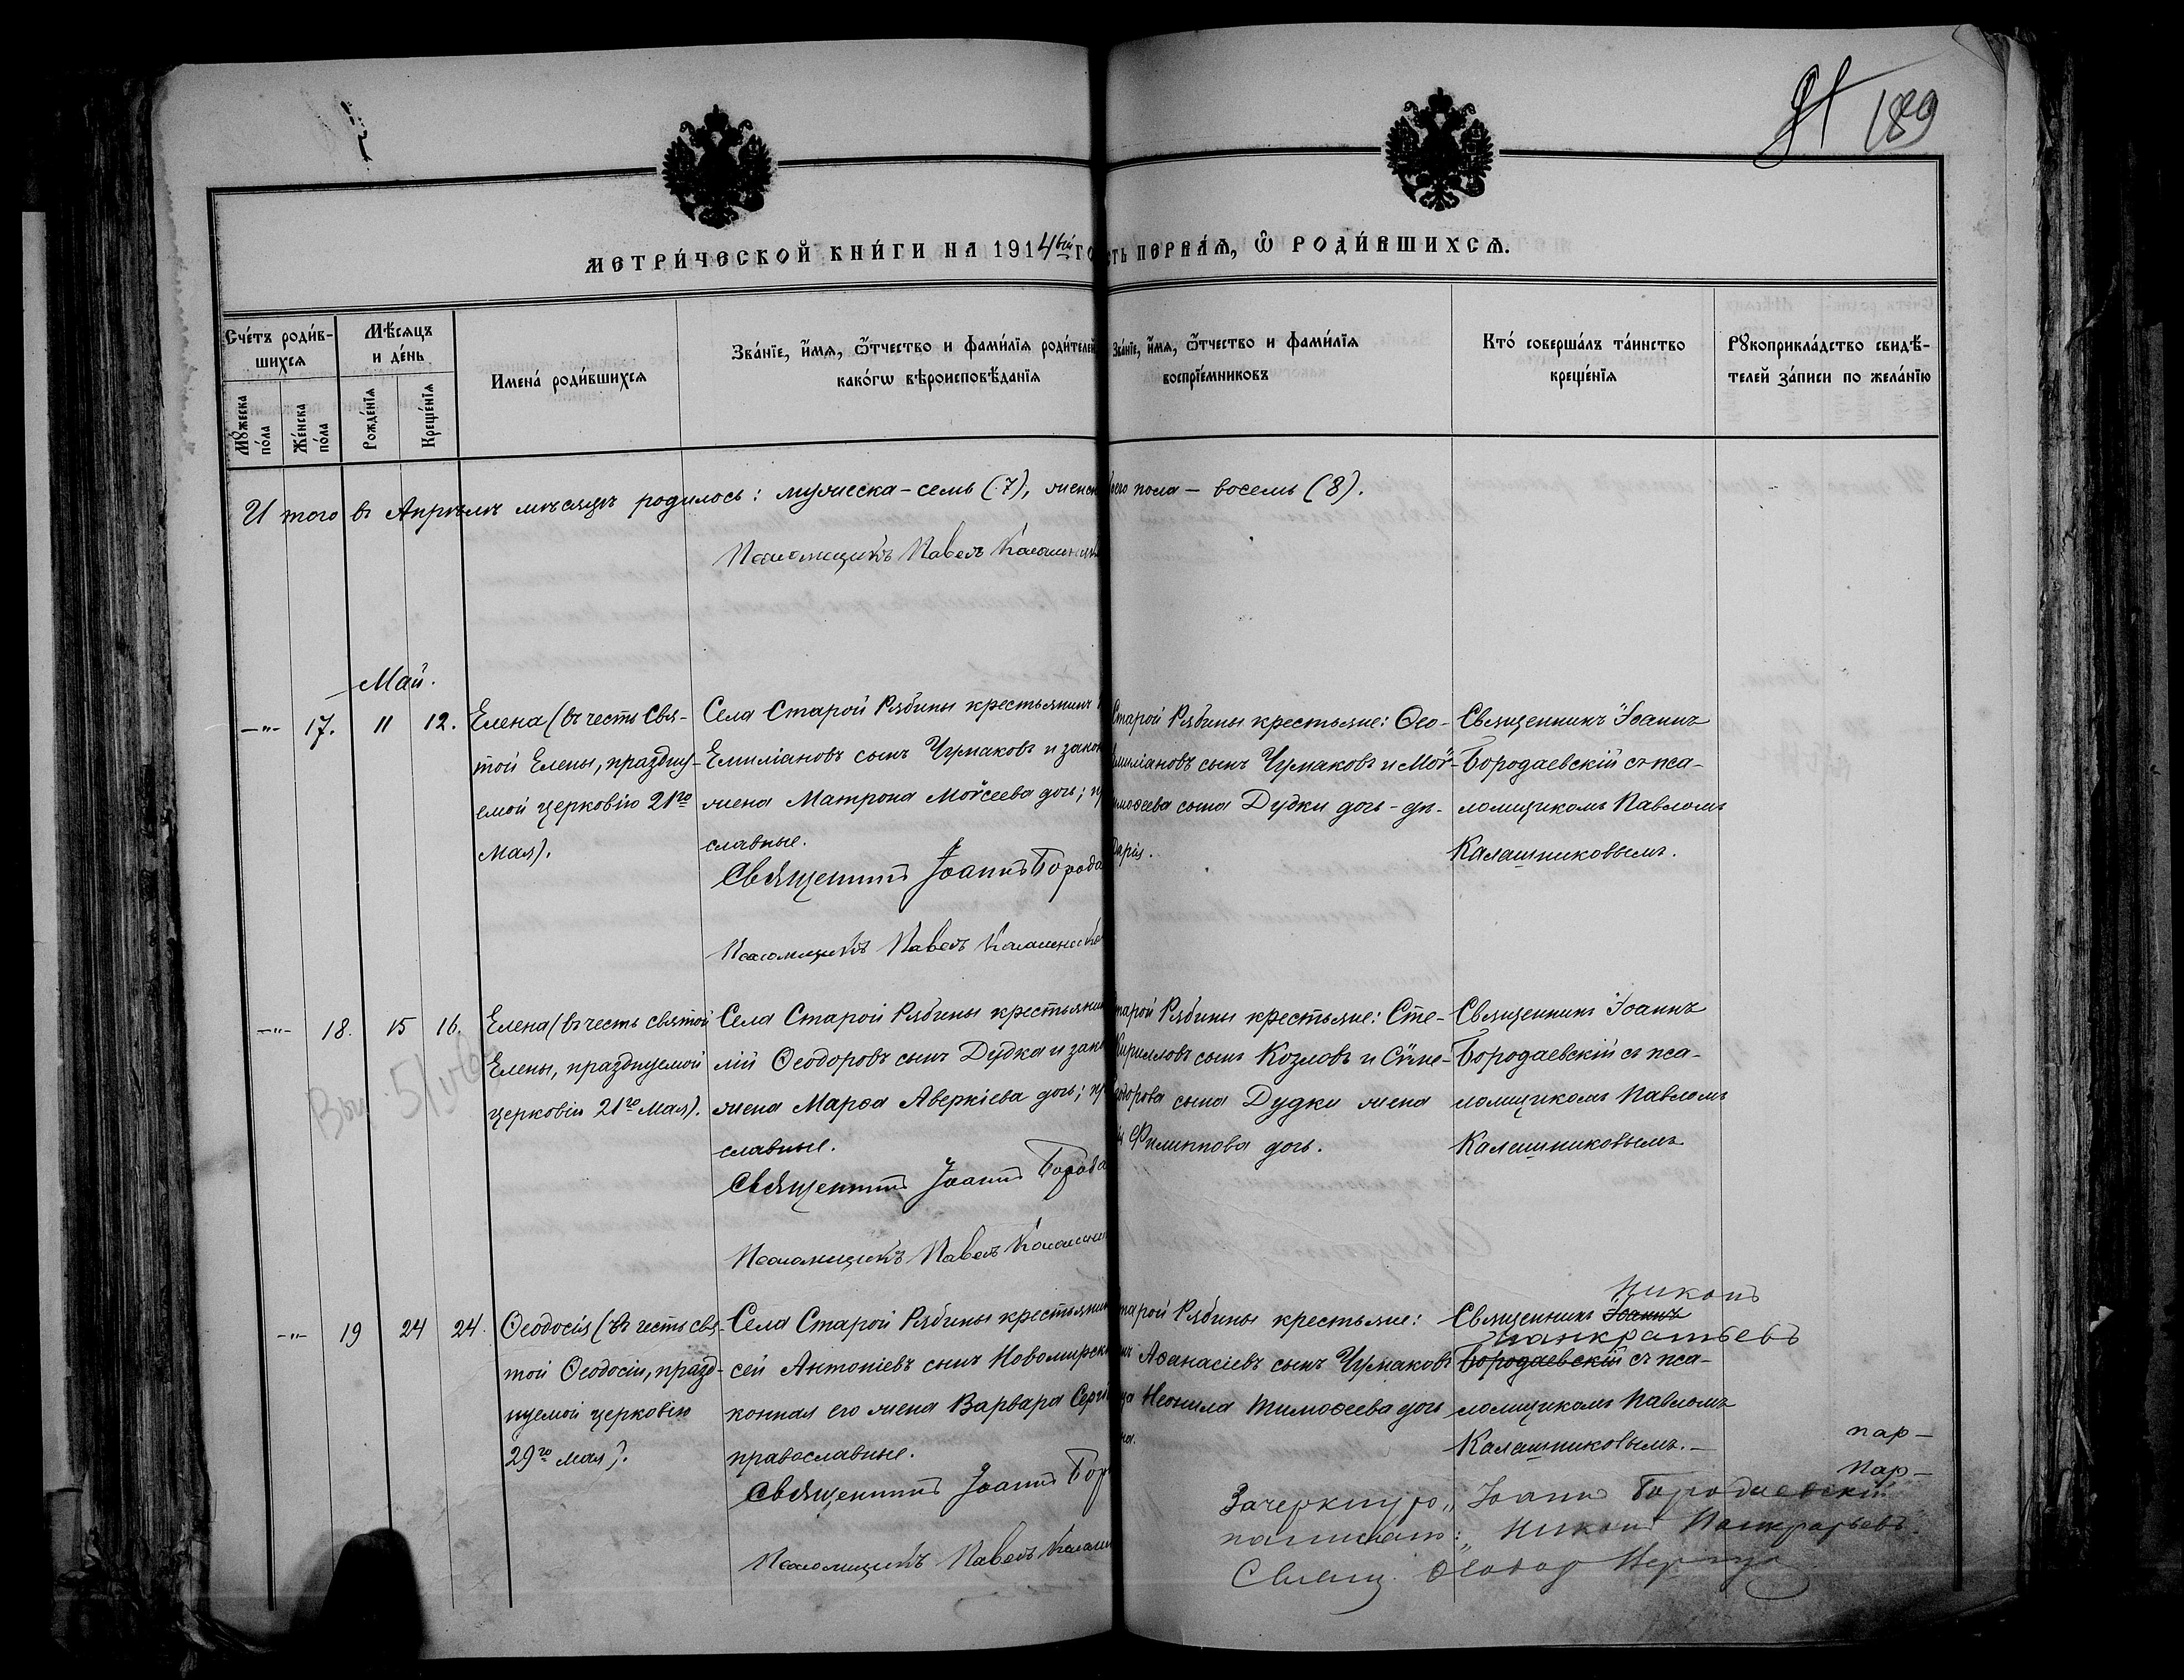 189
МЕТРИ́ЧЕСКОЙ КНИ́ГИ НА 1914ый ГО
СТЬ ПЕРВАѦ, Ѡ҆ РОДИ́ВШИХСѦ.
Сче́тъ роди́в-
шихся
Мѣ́сяцъ
и де́нь
Мꙋ́жеска
по́ла
Же́нска
по́ла
Рожде́нїѧ
Креще́нїѧ
Имена́ роди́вшихсѧ
Зва́нїе, и́мѧ, ѻ҆́тчество и фами́лїѧ роди́телей
како́гѡ вѣроисповѣ́данїѧ
Зва́нїе, и́мѧ, ѻ҆́тчество и фами́лїѧ
воспрїе́мниковъ
Кто́ соверша́лъ та́инство
креще́нїѧ
Рꙋкоприкла́дство свидѣ́-
телей за́писи по жела́нїю
И того въ Апрѣлѣ мѣсяцѣ родилось: мужеска – семь (7), женскаго пола – восемь (8).
Псаломщикъ Павелъ Калашников
Май.
-"- 17. 11 12.
Елена (въ честь Свя-
той Елены, праздну-
емой церковію 21го
Мая).
Села Старой Рябины крестьянинъ
Емиліановъ сынъ Чумаковъ и закон
жена Матрона Моѵсеева дочь; пр
славные.
Священникъ Іоаннъ Борода
Псаломщикъ Павелъ Калашников
Старой Рябины крестьяне: Ѳео-
Емиліановъ сынъ Чумаковъ и Моѵ-
имоѳеева сына Дудки дочь – дѣ-
Дарія.
Священникъ Іоаннъ
Бородаевскій съ пса-
ломщикомъ Павломъ
Калашниковымъ.
-"- 18. 15 16.
Елена (въ честь святой
Елены, празднуемой
церковію 21го Мая).
Села Старой Рябины крестьянин
лій Ѳеодоровъ сынъ Дудка и закн
жена Марѳа Аверкіева дочь; пр
славные.
Священникъ Іоаннъ Борода
Псаломщикъ Павелъ Калашни
Старой Рябины крестьяне: Сте-
Кирилловъ сынъ Козловъ и Сѵме-
еодорова сына Дудки жена
ія Филиппова дочь.
Священникъ Іоаннъ
Бородаевскій съ пса-
ломщикомъ Павломъ
Калашниковымъ
-"- 19 24 24.
Ѳеодосія (въ честь свя-
той Ѳеодосіи, празд-
нуемой церковію
29го мая).
Села Старой Рябины крестьянин
сей Антоніевъ сынъ Новомирск
конная его жена Варвара Серг
православные.
Священникъ Іоаннъ Бор
Псаломщикъ Павелъ Калаш
тарой Рябины крестьяне:
нъ Аѳанасіевъ сынъ Чумаковъ
ца Неонила Тимоѳеева дочь
на.
Никонъ
Священникъ Іоаннъ
Панкратьевъ
Бородаевскій съ пса-
ломщикомъ Павломъ
Калашниковымъ. –
Зачеркнуто „Іоаннъ Бородаевскій
написано: „Никонъ Панкратьевъ".
Священ. Ѳеодор